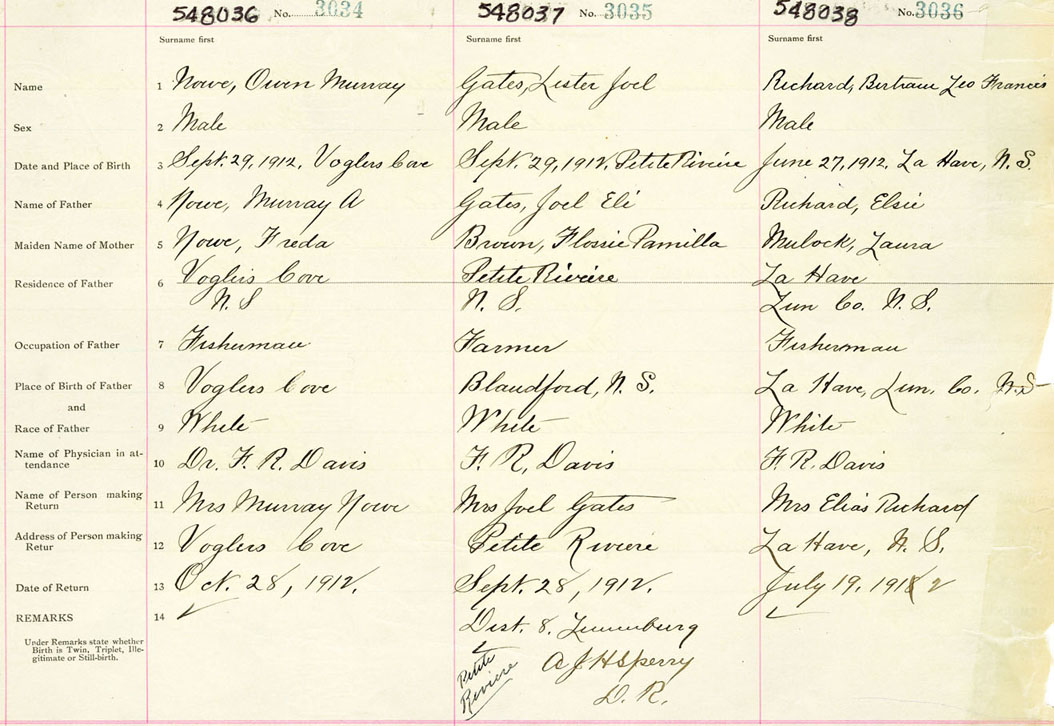 548036 No. 3034 548037 No. 3035 548038 No. 3036
Surname first Surname first Surname first
Name 1 Nowe, Owen Murray Gates, Lester Joel Richard, Bertram Leo Francis
Sex 2 Male Male Male
Date and Place of Birth 3 Sept. 29, 1912. Voglers Cove Sept. 29, 1912. Petite Riviere June 27, 1912. La Have, N. S.
Name of Father 4 Nowe, Murray A Gates, Joel Eli Richard, Elsie
Maiden Name of Mother 5 Nowe, Freda Brown, Flossie Pamilla Mulock, Laura
Residence of Father 6 Voglers Cove Petite Riviere La Have
N. S N. S. Lun Co. N. S.
Occupation of Father 7 Fisherman Farmer Fisherman
Place of Birth of Father 8 Voglers Cove Blandford, N. S. La Have, Lun. Co. N.S
and
Race of Father 9 White White White
Name of Physician in at-
tendance 10 Dr. F. R. Davis F. R. Davis F. R. Davis
Name of Person making
Return 11 Mrs Murray Nowe Mrs Joel Gates Mrs Elias Richard
Address of Person making
Retur 12 Voglers Cove Petite Riviere La Have, N. S.
Date of Return 13 Oct. 28, 1912. Sept. 28, 1912. July 19, 1912
REMARKS 14
Under Remarks state whether
Birth is Twin, Triplet, Ille-
gitimate or Still-birth.
Dist. 8. Lunenburg
Petite
Riviere
A J H Sperry
D. R.